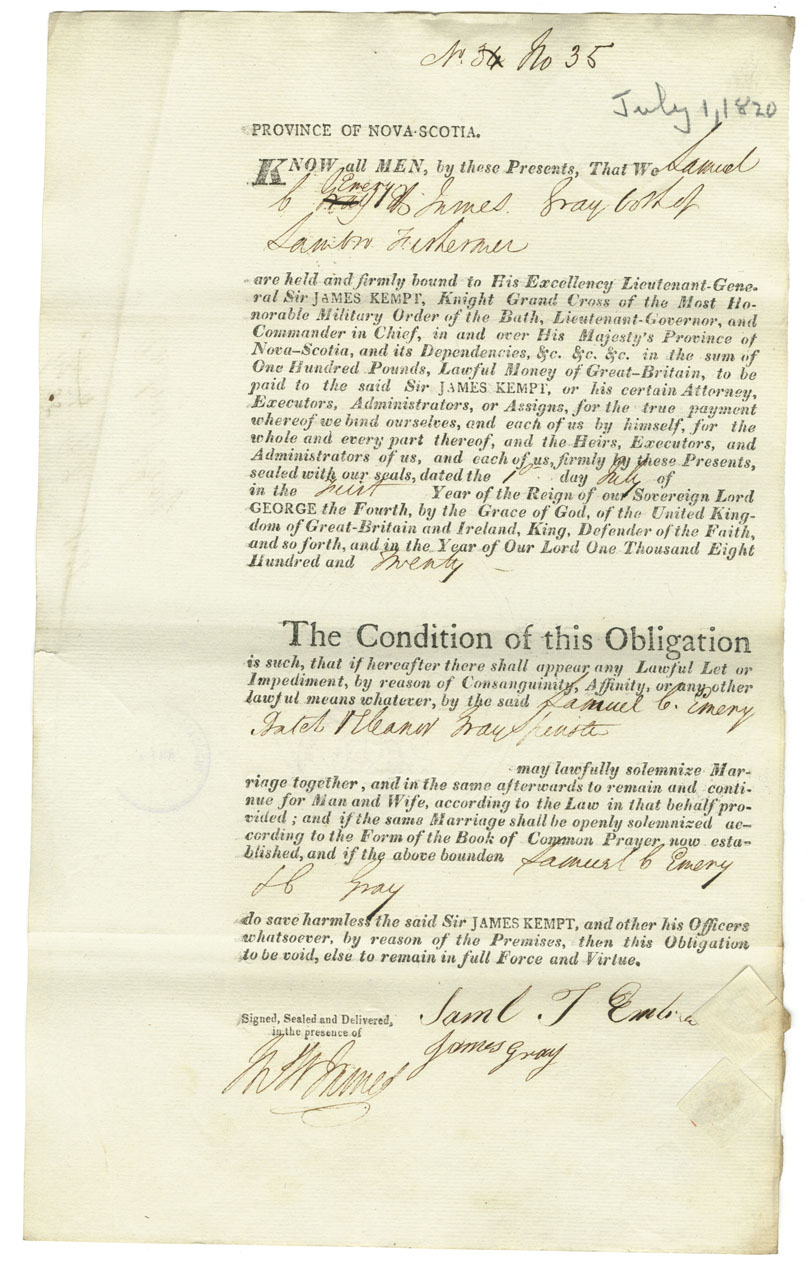 No 35
July 1, 1820
PROVINCE OF NOVA-SCOTIA.
KNOW all MEN, by these Presents, That We Samuel
C Emery & James Gray both of
Sambro Fishermen
are held and firmly bound to His Excellency Lieutenant-Gene-
ral Sir JAMES KEMPT, Knight Grand Cross of the Most Ho-
norable Military Order of the Bath, Lieutenant-Governor, and
Commander in Chief, in and over His Majesty's Province of
Nova-Scotia, and its Dependencies, &c. &c. &c. in the sum of
One Hundred Pounds, Lawful Money of Great-Britain, to be
paid to the said Sir JAMES KEMPT, or his certain Attorney,
Executors, Administrators, or Assigns, for the true payment
whereof we bind ourselves, and each of us by himself, for the
whole and every part thereof, and the Heirs, Executors, and
Administrators of us, and each of us, firmly by these Presents,
sealed with our seals, dated the 1st day July of
in the First Year of the Reign of our Sovereign Lord
GEORGE the Fourth, by the Grace of God, of the United King-
dom of Great-Britain and Ireland, King, Defender of the Faith,
and so forth, and in the Year of Our Lord One Thousand Eight
Hundred and Twenty
The Condition of this Obligation
is such, that if hereafter there shall appear any Lawful Let or
Impediment, by reason of Consanguinity, Affinity, or any other
lawful means whatever, by the said Samuel C. Emery
Eleanor Gray Spinster
may lawfully solemnize Mar-
riage together, and in the same afterwards to remain and conti-
nue for Man and Wife, according to the Law in that behalf pro-
vided; and if the same Marriage shall be openly solemnized ac-
cording to the Form of the Book of Common Prayer, now esta-
blished, and if the above bounden Samuel C Emery
Gray
do save harmless the said Sir JAMES KEMPT, and other his Officers
whatsoever, by reason of the Premises, then this Obligation
to be void, else to remain in full Force and Virtue.
Signed, Sealed and Delivered,
in the presence of
Saml
James Gray